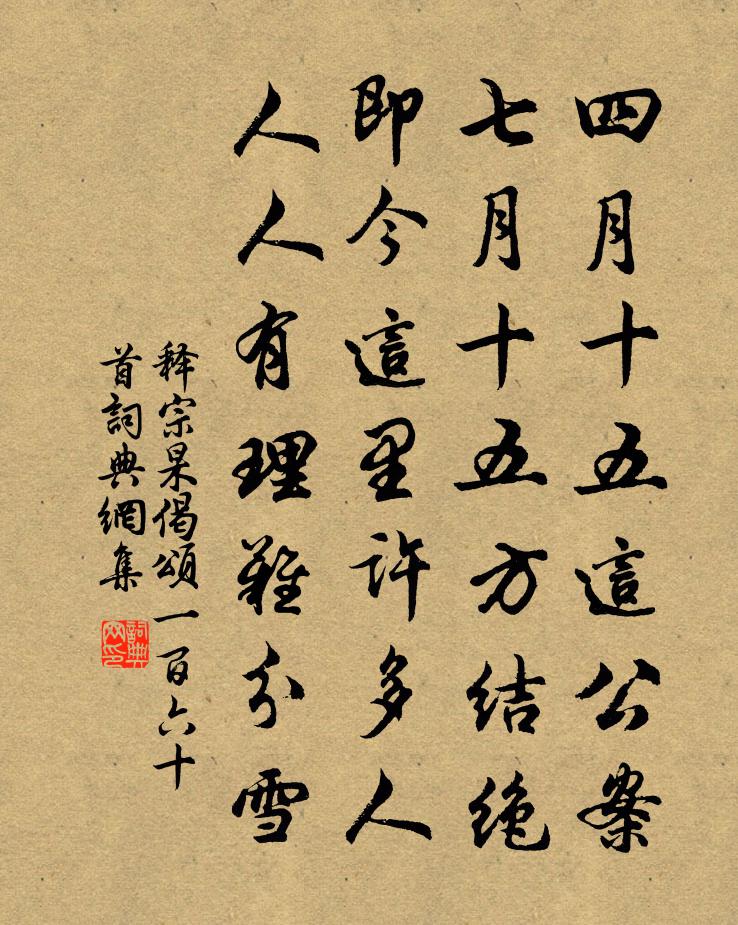 四月十五這公案
七月十五方結絶
即今這里許多人
人人有理難分雪
释宗杲偈頌一百六十
首詞典網集
詞典网印